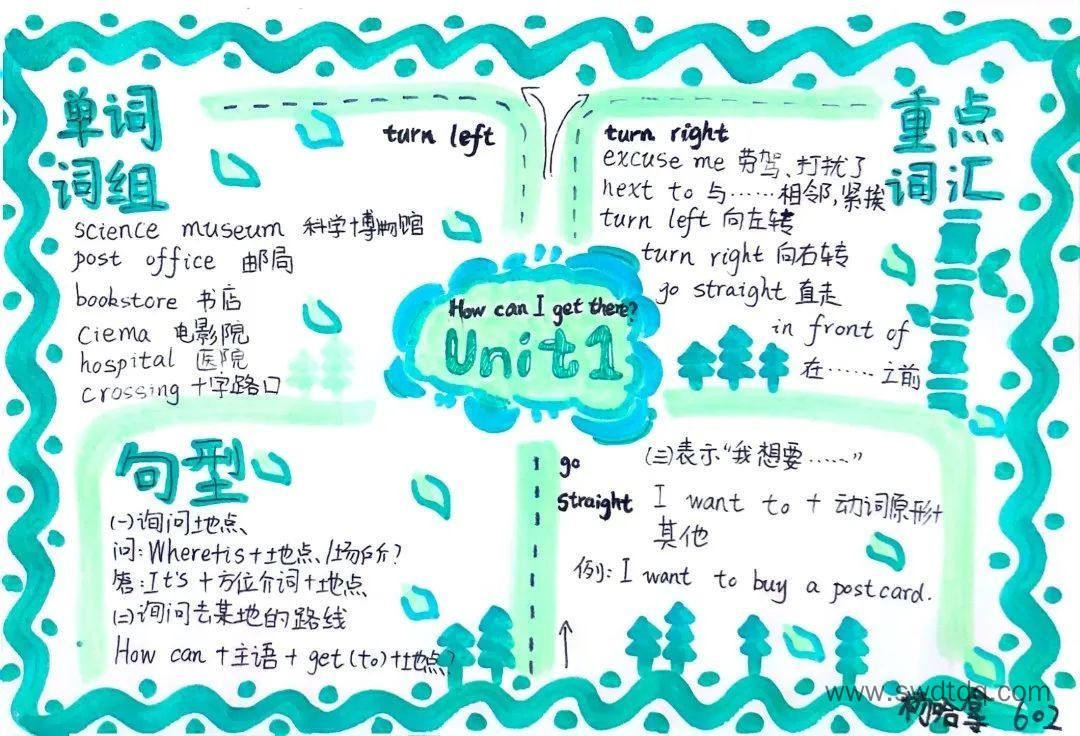 单词
词组
turn left
science museum 科学博物馆
post office 邮局
bookstore 书店
ciema 电影院
hospital 医院
crossing 十字路口
turn right
重点
词汇
excuse me 劳驾、打扰了
next to 与……相邻,紧挨
turn left 向左转
turn right 向右转
go straight 直走
in front of
在……之前
How can I get there?
Unit1
句型
(一)询问地点
问:Where+is+地点/场所?
答:It's+方位介词+地点
(二)询问去某地的路线
How can+主语+get(to)+地点?
go
straight
(三)表示“我想要……”
I want to + 动词原形+
其他
例:I want to buy a postcard.
www.swdtdq.com
602